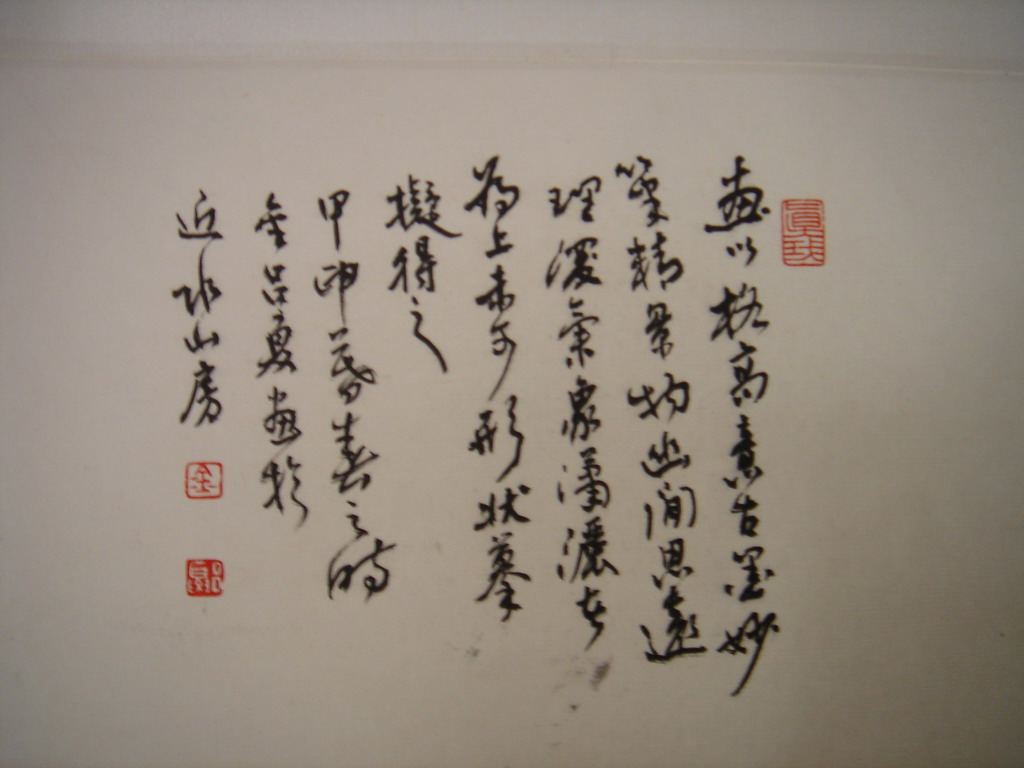 畫以格高意古墨妙
筆精景物幽閒思遠
理深氣象瀟灑者
為上未可形狀摹
擬得之
甲申暮春之時
金呂夐畫於
近水山房
金